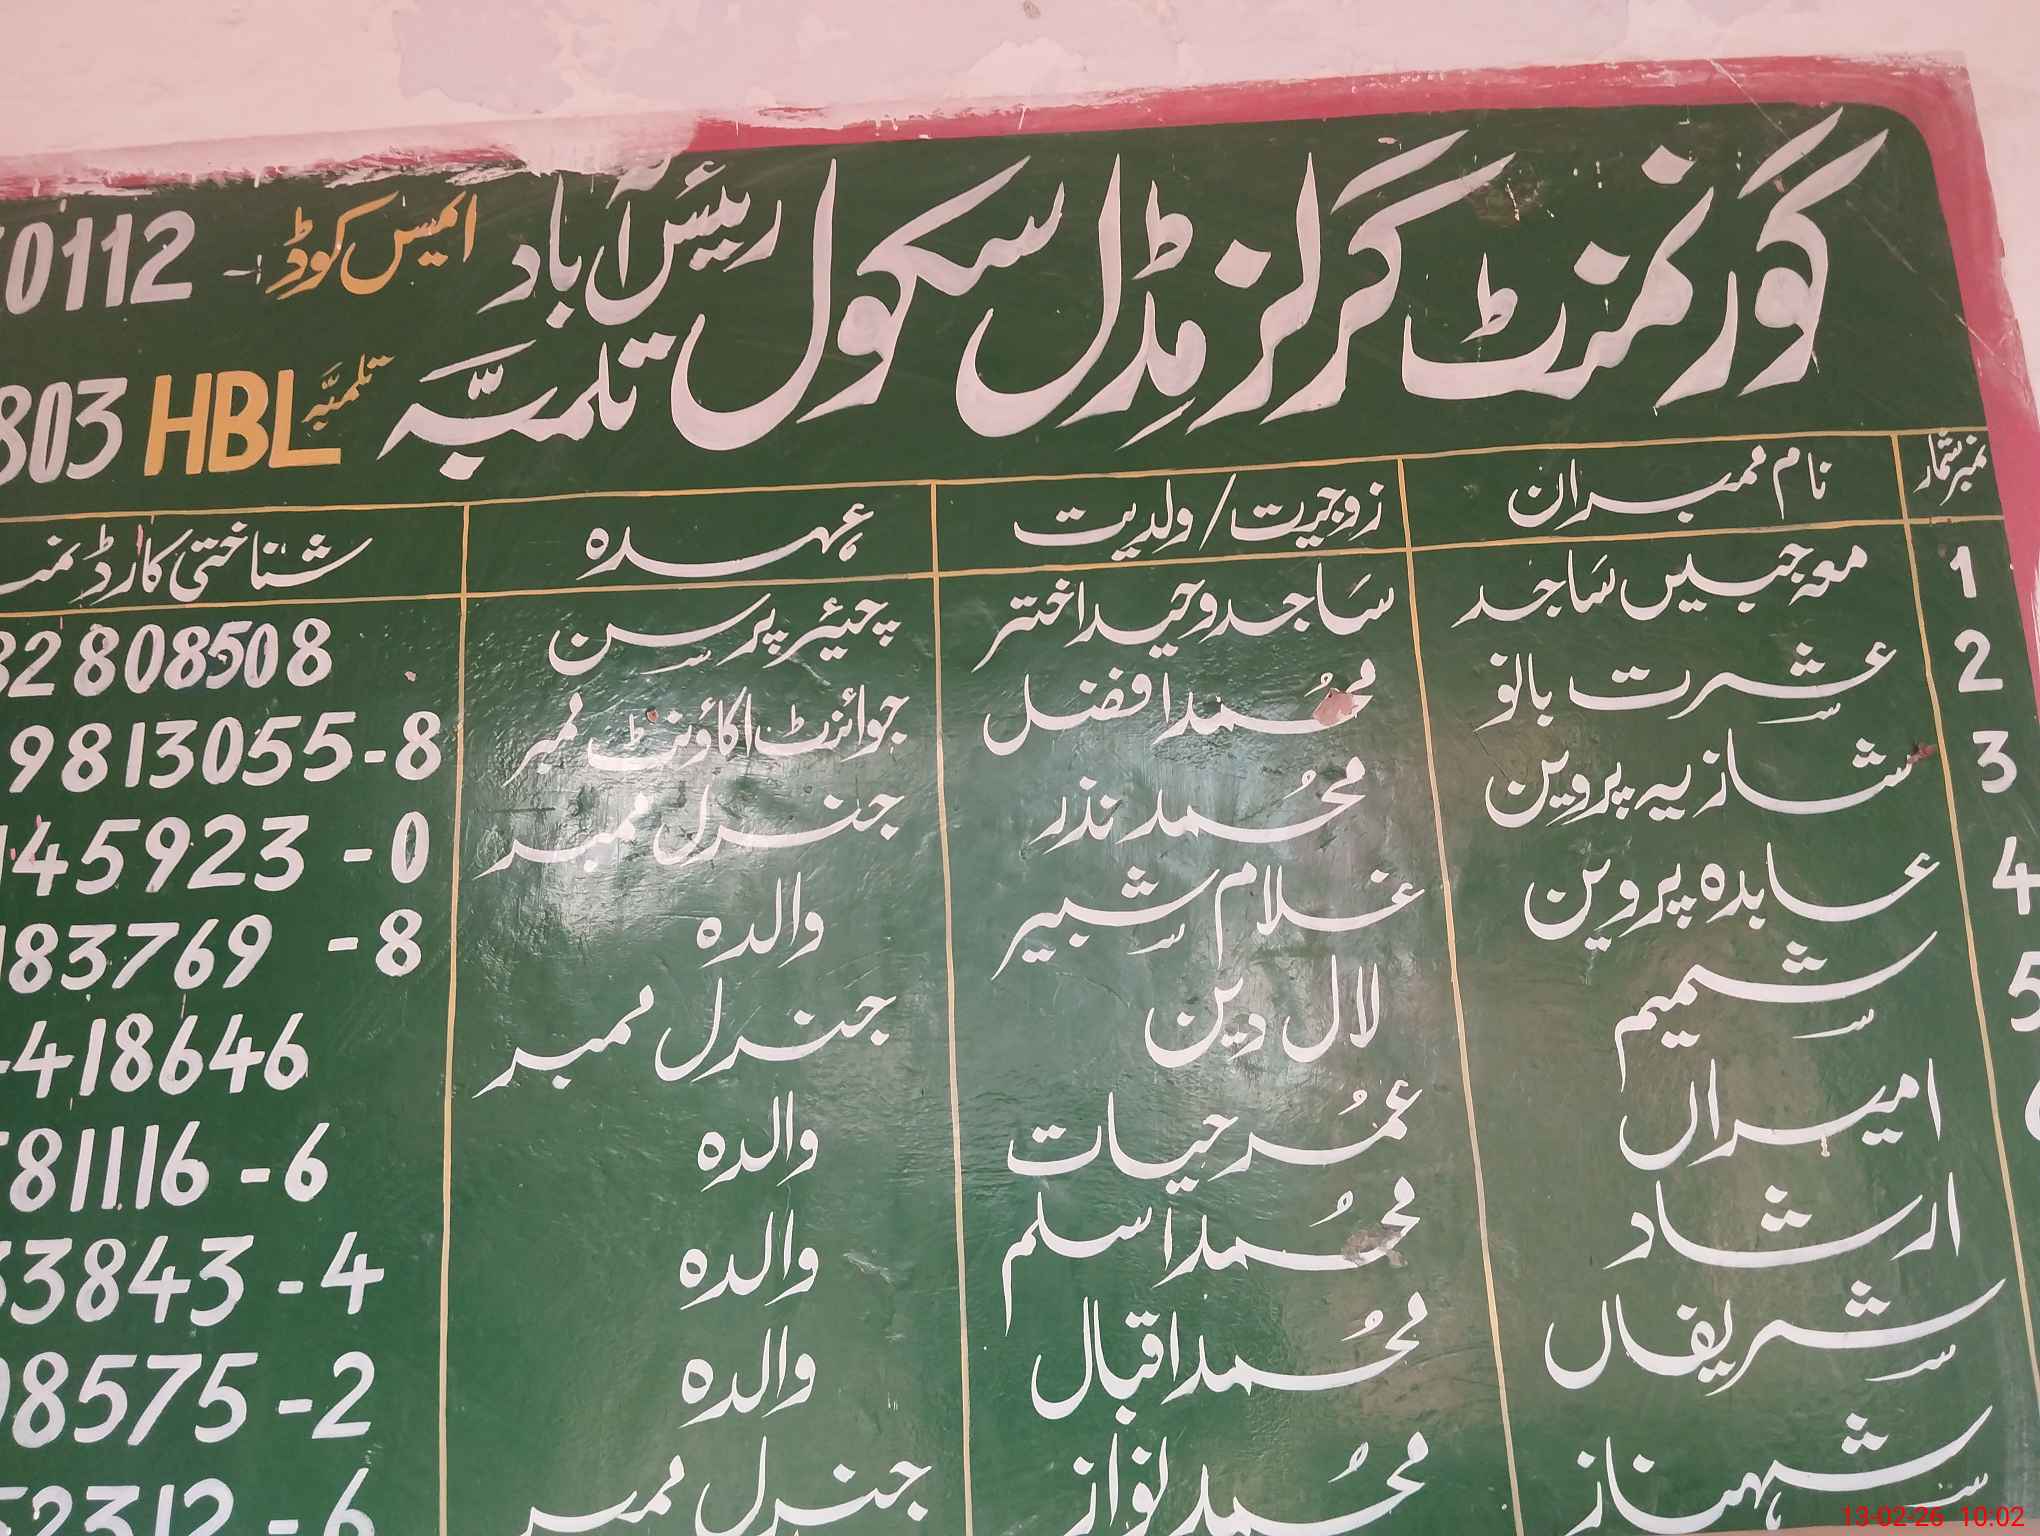 گورنمنٹ گرلز مڈل سکول رئیس آباد تلمبہ
ایمس کوڈ - 0112
803 HBL تلمبہ
نمبر شمار نام ممبران زوجیت/ولدیت عہدہ شناختی کارڈ نمبر
1 معہ جبیں ساجد ساجد وحید اختر چیئر پرسن 82808508
2 عشرت بانو محمد افضل جوائنٹ اکاؤنٹ ممبر 9813055-8
3 شازیہ پروین محمد نذر جنرل ممبر 145923-0
4 عابدہ پروین غلام شبیر والدہ 183769-8
5 شمیم لال دین جنرل ممبر 418646
امیراں عمر حیات والدہ 81116-6
ارشاد محمد اسلم والدہ 33843-4
شریفاں محمد اقبال والدہ 08575-2
شہناز محمد نواز جنرل ممبر 52312-6
13-02-26 10:02